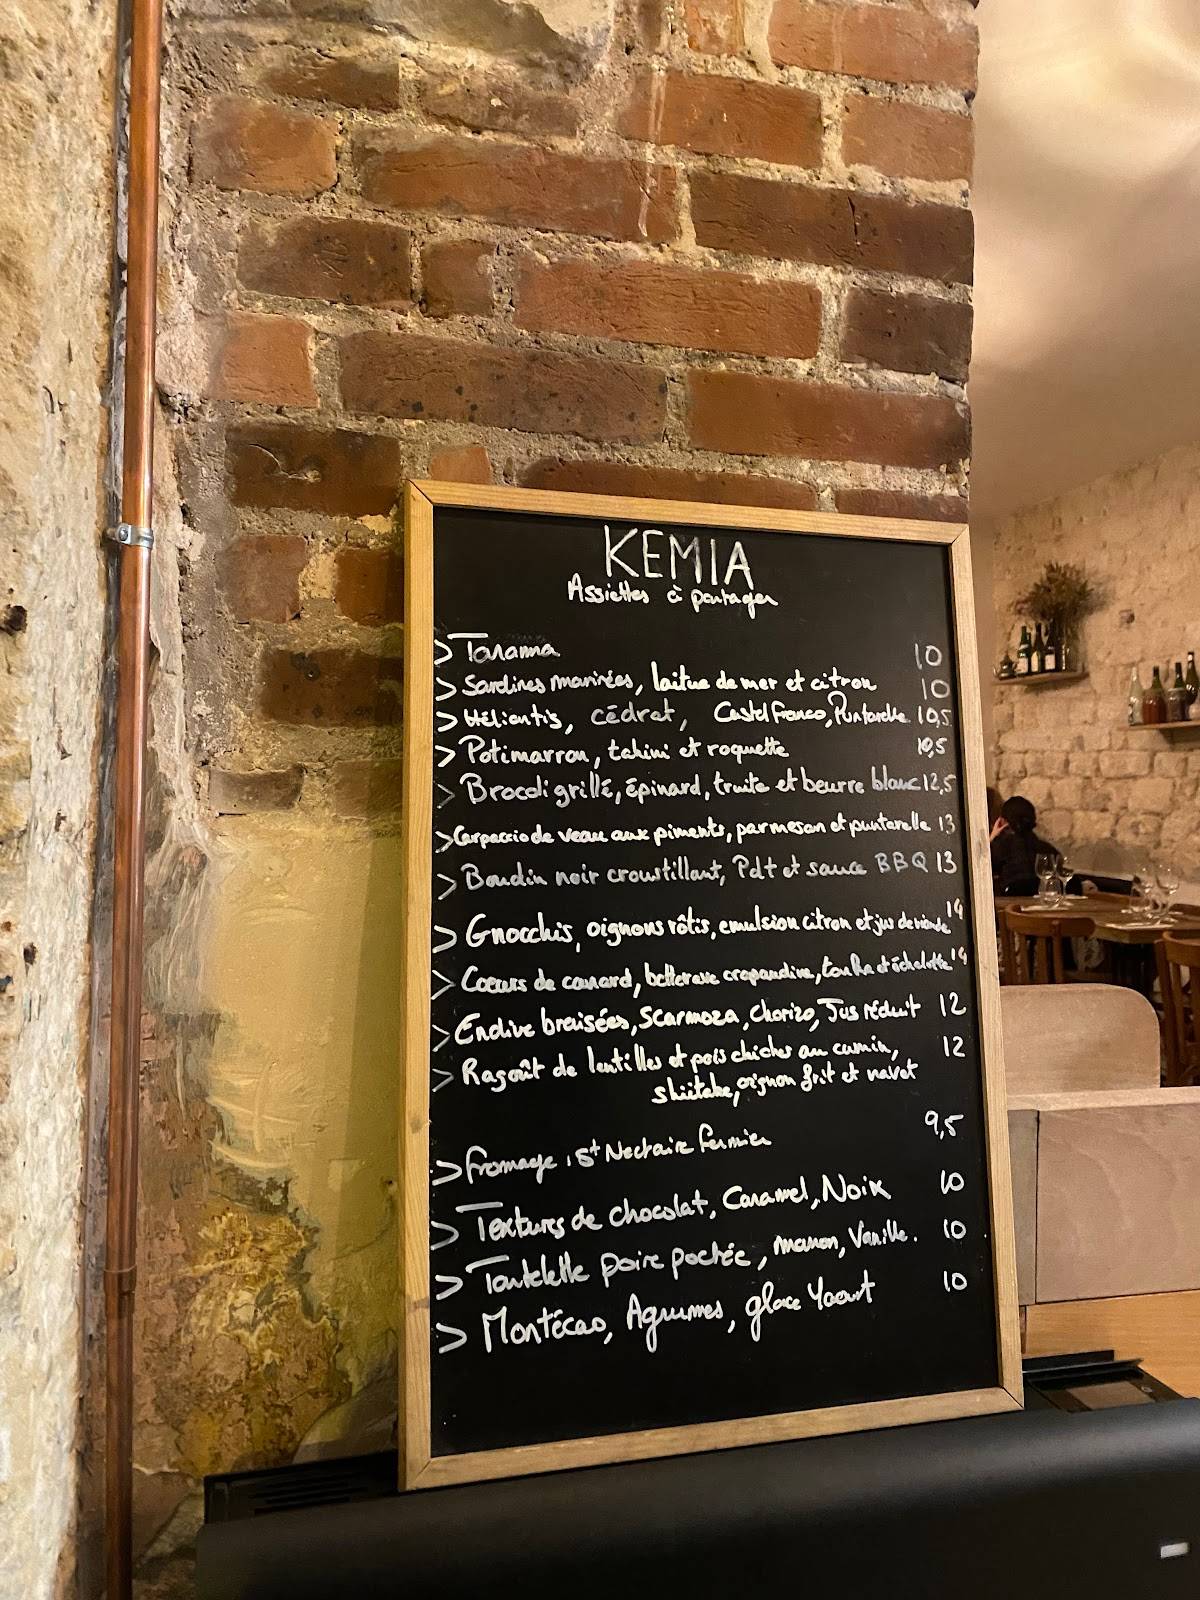 KEMIA
Assiettes à partager
> Tarama 10
> Sardines marinées, laitue de mer et citron 10
> Héliantis, cédrat, Castelfranco, Puntarelle 10,5
> Potimarron, tahini et roquette 10,5
> Brocoli grillé, épinard, truite et beurre blanc 12,5
> Carpaccio de veau aux piments, parmesan et puntarelle 13
> Boudin noir croustillant, Pdt et sauce BBQ 13
> Gnocchis, oignons rôtis, emulsion citron et jus de viande 14
> Coeurs de canard, betterave crapaudine, tonka et échalotte 14
> Endive braisées, Scarmoza, Chorizo, Jus réduit 12
> Ragoût de lentilles et pois chiches au cumin, 12
shiitake, oignon frit et navet
> Fromage : St Nectaire fermier 9,5
> Textures de chocolat, Caramel, Noix 10
> Tartelette poire pochée, marron, Vanille. 10
> Montécao, Agrumes, glace Yaourt 10